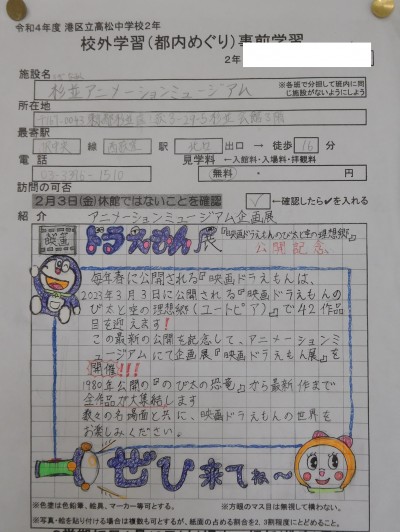 令和4年度 港区立高松中学校2年
校外学習(都内めぐり)事前学習
2年
施設名
杉並アニメーションミュージアム
※各班で分担して班内に同じ施設がないようにしよう
所在地
〒167-0043 東京都杉並区上荻3-29-5杉並会館3階
最寄駅
JR中央 線 西荻窪 駅 北口 出口 → 徒歩 16 分
電話
見学料 ー入館料・入場料・拝観料
03-3396-1510
無料・ 円
訪問の可否
2月3日(金)休館ではないことを確認 ✓ ←確認したら✓を入れる
紹介 アニメーションミュージアム企画展
映画 ドラえもん展 『映画ドラえもんのび太と空の理想郷』
公開記念
毎年春に公開される『映画ドラえもん』は、
2023年3月3日に公開される『映画ドラえもんの
び太と空の理想郷(ユートピア)』で42作品
目を迎えます!
この最新の公開を記念して、アニメーションミ
ュージアムにて企画展『映画ドラえもん展』を
開催!!!
1980年公開の『のび太の恐竜』から最新作まで
全作品が大集結します
数々の名場面と共に、映画ドラえもんの世界を
お楽しみください。
ぜひ来てね〜
※色塗は色鉛筆、絵具、マーカー等可とする。 ※方眼のマス目は無視して構わない。
※写真・絵を貼り付ける場合は複数も可とするが、紙面の占める割合を2、3割程度にとどめること。